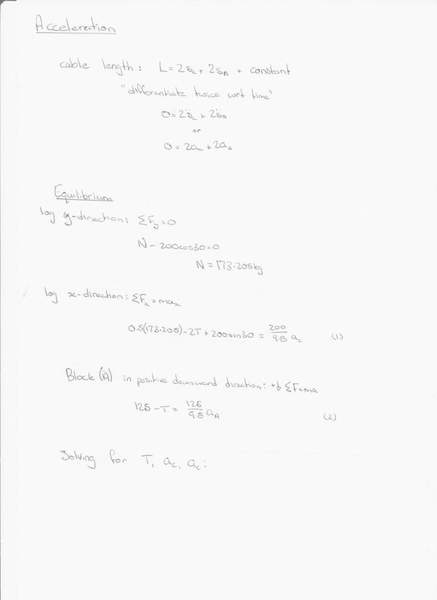 Acceleration
cable length: L = 2s_c + 2s_A + constant
"differentiate twice wrt time"
0 = 2s̈_c + 2s̈_A
or
0 = 2a_c + 2a_A
Equilibrium
log y-direction: ΣF_y = 0
N - 200cos30 = 0
N = 173.205kg
log x-direction: ΣF_x = ma_x
0.5(173.205) - 2T + 200sin30 = 200/9.8 a_c (1)
Block (A) in positive downward direction: +↓ ΣF = ma
125 - T = 125/9.8 a_A (2)
Solving for T, a_c, a_c: